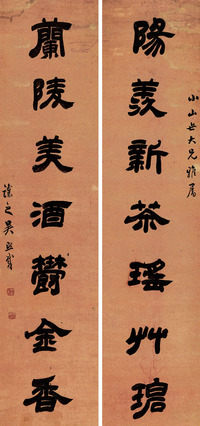 小山世大兄雅屬
陽羨新茶瑤艸琯
蘭陵美酒欎金香
讓之吳熙載